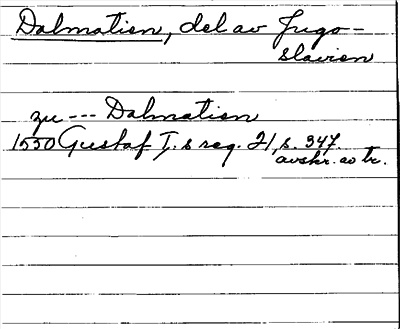 Dalmatien, del av Jugo-
slavien
zu --- Dalmatien
1550 Gustaf I.s reg. 21, s. 347.
avskr. av tr.